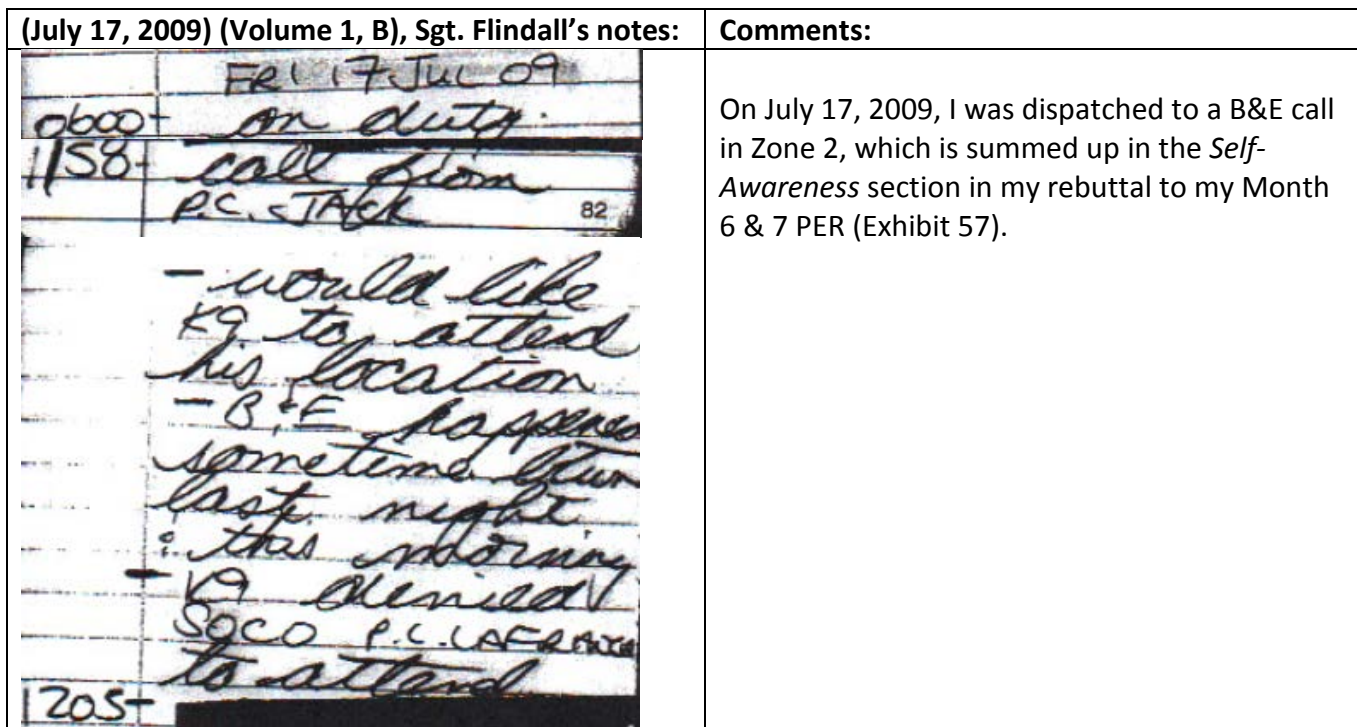 (July 17, 2009) (Volume 1, B), Sgt. Flindall’s notes:
FRI 17 JUL 09
0600- on duty.
1158- call from
P.C. JACK 82
- would like
K9 to attend
his location
- B & E happened
sometime btwn
last night
: this morning
- K9 denied
SOCO P.C.
to attend
1205-
Comments:
On July 17, 2009, I was dispatched to a B&E call
in Zone 2, which is summed up in the Self-
Awareness section in my rebuttal to my Month
6 & 7 PER (Exhibit 57).